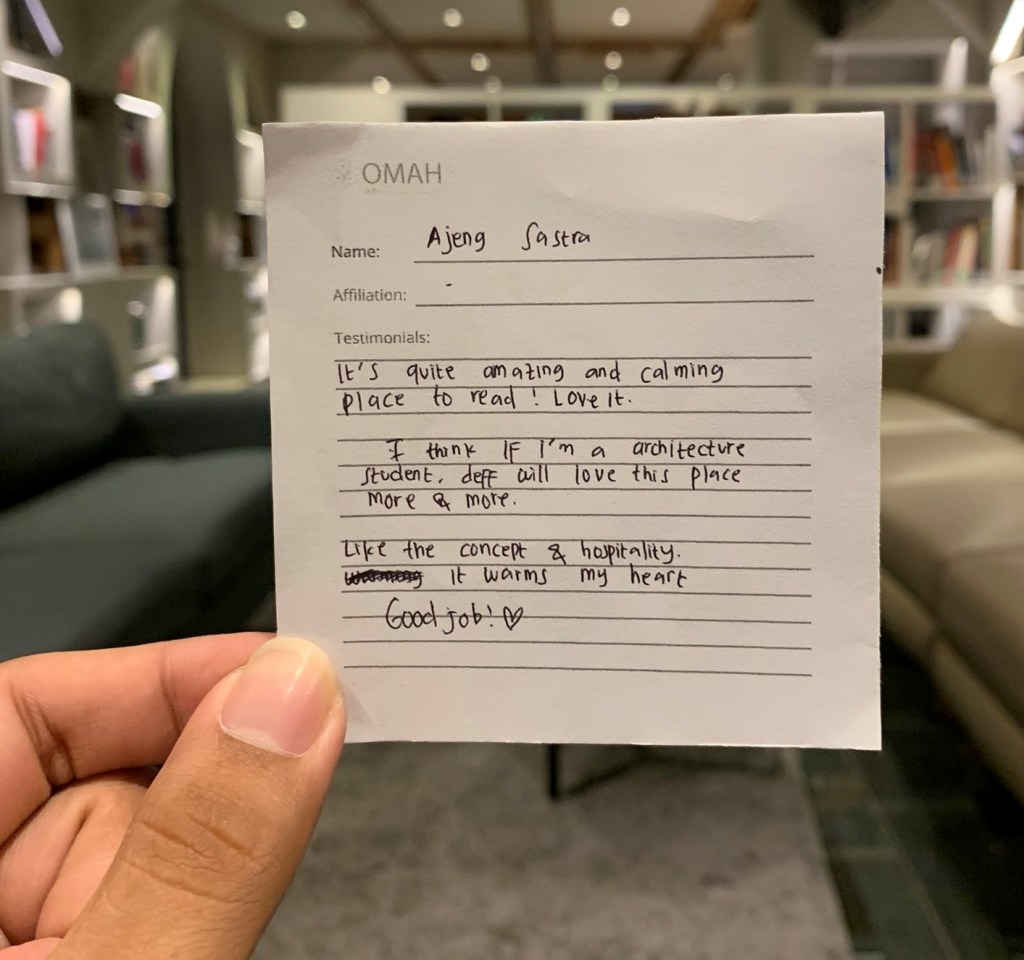 OMAH
Name: Ajeng Sastra
Affiliation: -
Testimonials:
It's quite amazing and calming
place to read! Love it.
I think IF I'm a architecture
student, deff will love this place
more & more.
Like the concept & hospitality.
It warms my heart
Good job! ♡